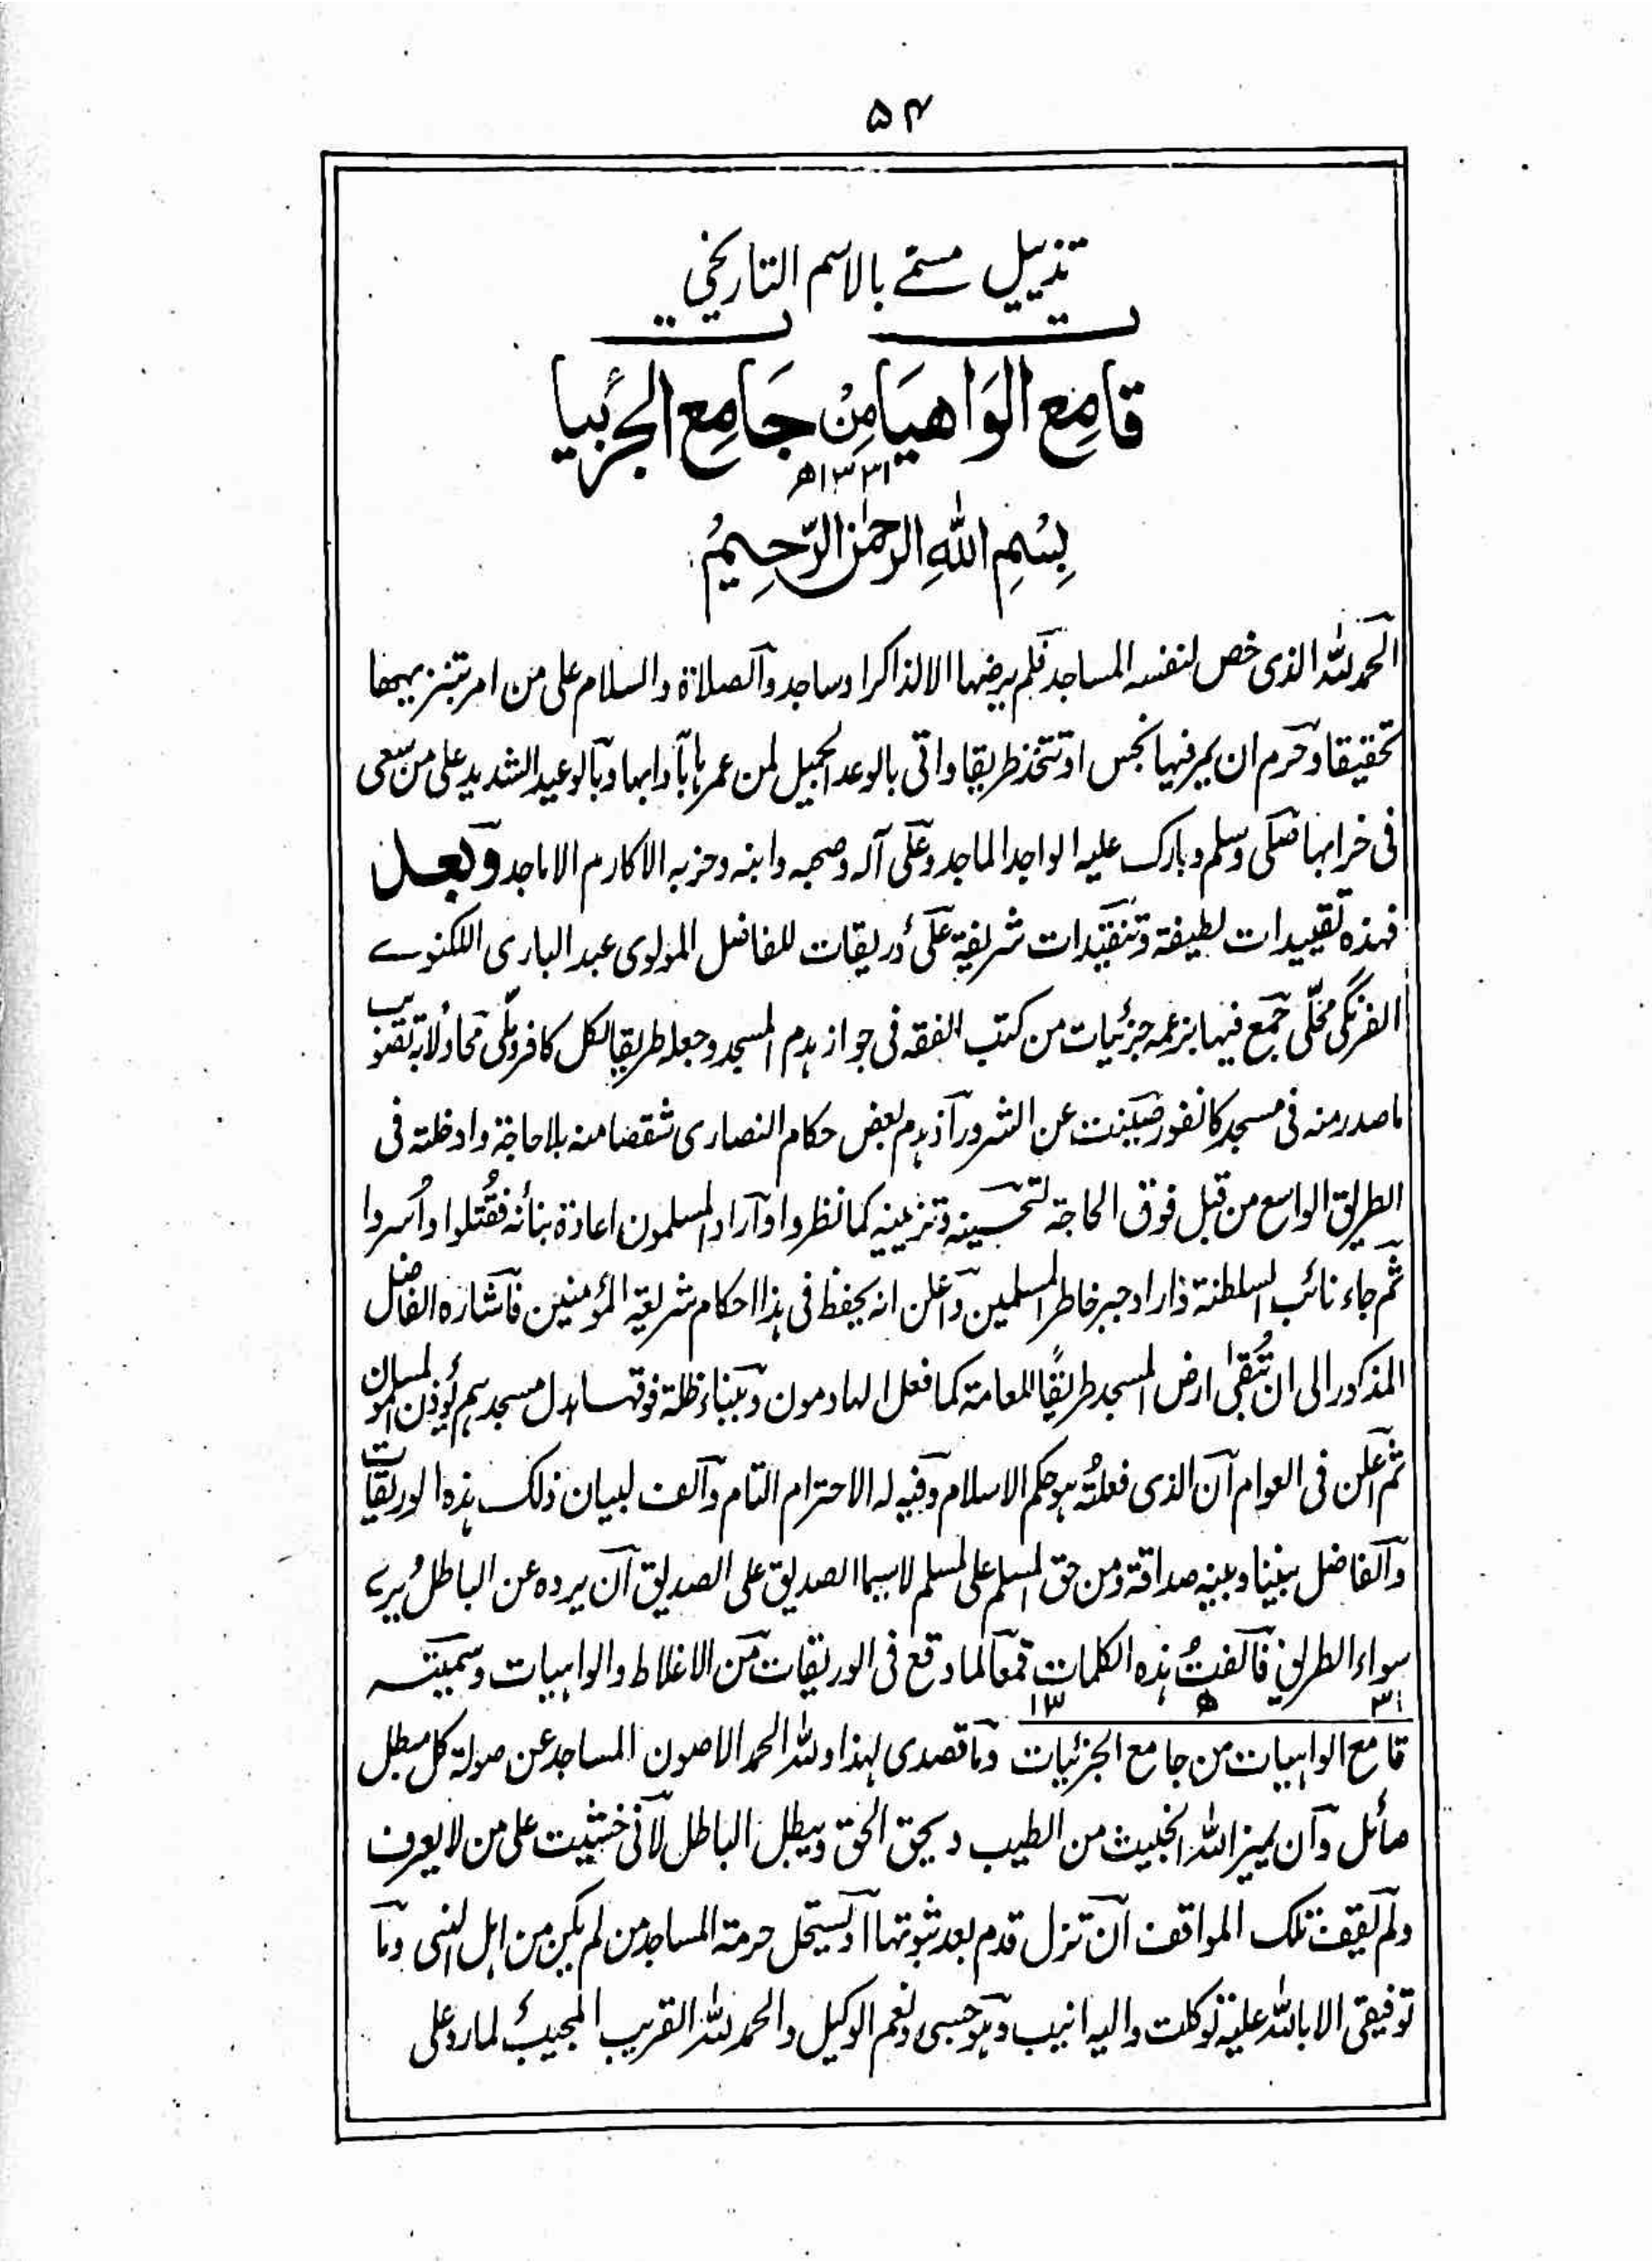 ۵۴
تذییل مسمّے بالاسم التاریخی
قامِع الوَاهیَات مِنْ جَامِع الجزئیات
۱۳۳۱ھ
بِسْمِ اللّٰهِ الرحمٰن الرّحِیمْ
الحمد للہ الذی خص لنفسہ المساجد فلم یرضہا الا لذاکر او ساجد والصلاۃ والسلام علی من امر بتنزیہہا
تحقیقا وحرم ان یمر فیہا نجس او تتخذ طریقا واتی بالوعد الجمیل لمن عمرہا بآدابہا وبالوعید الشدید علی من سعی
فی خرابہا صلی وسلم وبارک علیہ الواجد الماجد وعلی آلہ وصحبہ وابنہ وحزبہ الاکارم الاماجد وبعد
فہذہ تقییدات لطیفۃ وتنقیدات شریفۃ علی وریقات للفاضل المولوی عبد الباری اللکنوے
الفرنگی محلی جمع فیہا بزعمہ جزئیات من کتب الفقہ فی جواز ہدم المسجد وجعلہ طریقا لکل کافر وملی محاولا بہ تقریب
ما صدر منہ فی مسجد کانفور صینت عن الشرور اذ ہدم بعض حکام النصاری شقصا منہ بلا حاجۃ وادخلتہ فی
الطریق الواسع من قبل فوق الحاجۃ لتحسینہ وتزیینہ کما نظروا واراد المسلمون اعادۃ بنائہ فقُتلوا واُسروا
ثم جاء نائب السلطنۃ فاراد جبر خاطر المسلمین واعلن انہ یحفظ فی ہذا احکام شریعۃ المؤمنین فاشارہ الفاضل
المذکور الی ان تُبقی ارض المسجد طریقًا للعامۃ کما فعل الہادمون وببناء ظلۃ فوقہا بدل مسجدہم یُوذن المسلمون
ثم اعلن فی العوام ان الذی فعلتُہ ہو حکم الاسلام وفیہ لہ الاحترام التام والف لبیان ذلک ہذہ الوریقات
والفاضل بیننا وبینہ صداقۃ ومن حق المسلم علی المسلم لاسیما الصدیق علی الصدیق ان یردہ عن الباطل یُرے
سواء الطریق فالفتُ ہذہ الکلمات قمعا لما وقع فی الوریقات من الاغلاط والواہیات وسمیتہ
۱۳ ھ ۳۱
قامع الواہیات من جامع الجزئیات وما قصدی لہذا وللہ الحمد الا صون المساجد عن صولۃ کل مبطل
صائل وان یمیز اللہ الخبیث من الطیب ویحق الحق ویبطل الباطل لانی خشیت علی من لا یعرف
ولم یقف تلک المواقف ان تزل قدم بعد ثبوتہا او یستحل حرمۃ المساجد من لم یکن من اہل النہی وما
توفیقی الا باللہ علیہ توکلت والیہ انیب وہو حسبی ونعم الوکیل والحمد للہ القریب المجیب لما رد علی